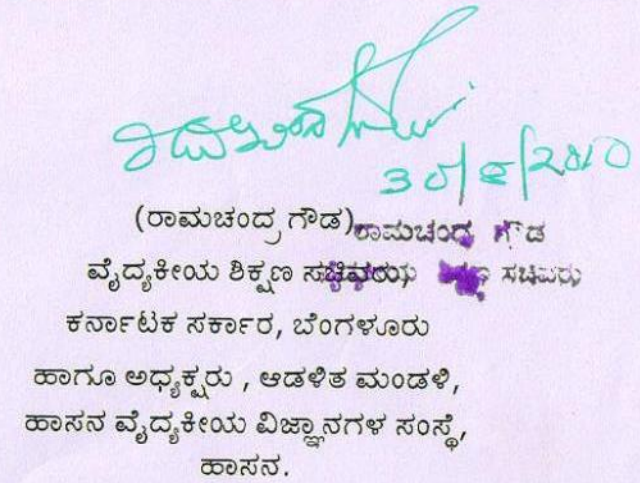 30/8/2010
(ರಾಮಚಂದ್ರ ಗೌಡ) ರಾಮಚಂದ್ರ ಗೌಡ
ವೈದ್ಯಕೀಯ ಶಿಕ್ಷಣ ಸಚಿವರು, ಸಚಿವರು
ಕರ್ನಾಟಕ ಸರ್ಕಾರ, ಬೆಂಗಳೂರು
ಹಾಗೂ ಅಧ್ಯಕ್ಷರು , ಆಡಳಿತ ಮಂಡಳಿ,
ಹಾಸನ ವೈದ್ಯಕೀಯ ವಿಜ್ಞಾನಗಳ ಸಂಸ್ಥೆ,
ಹಾಸನ.